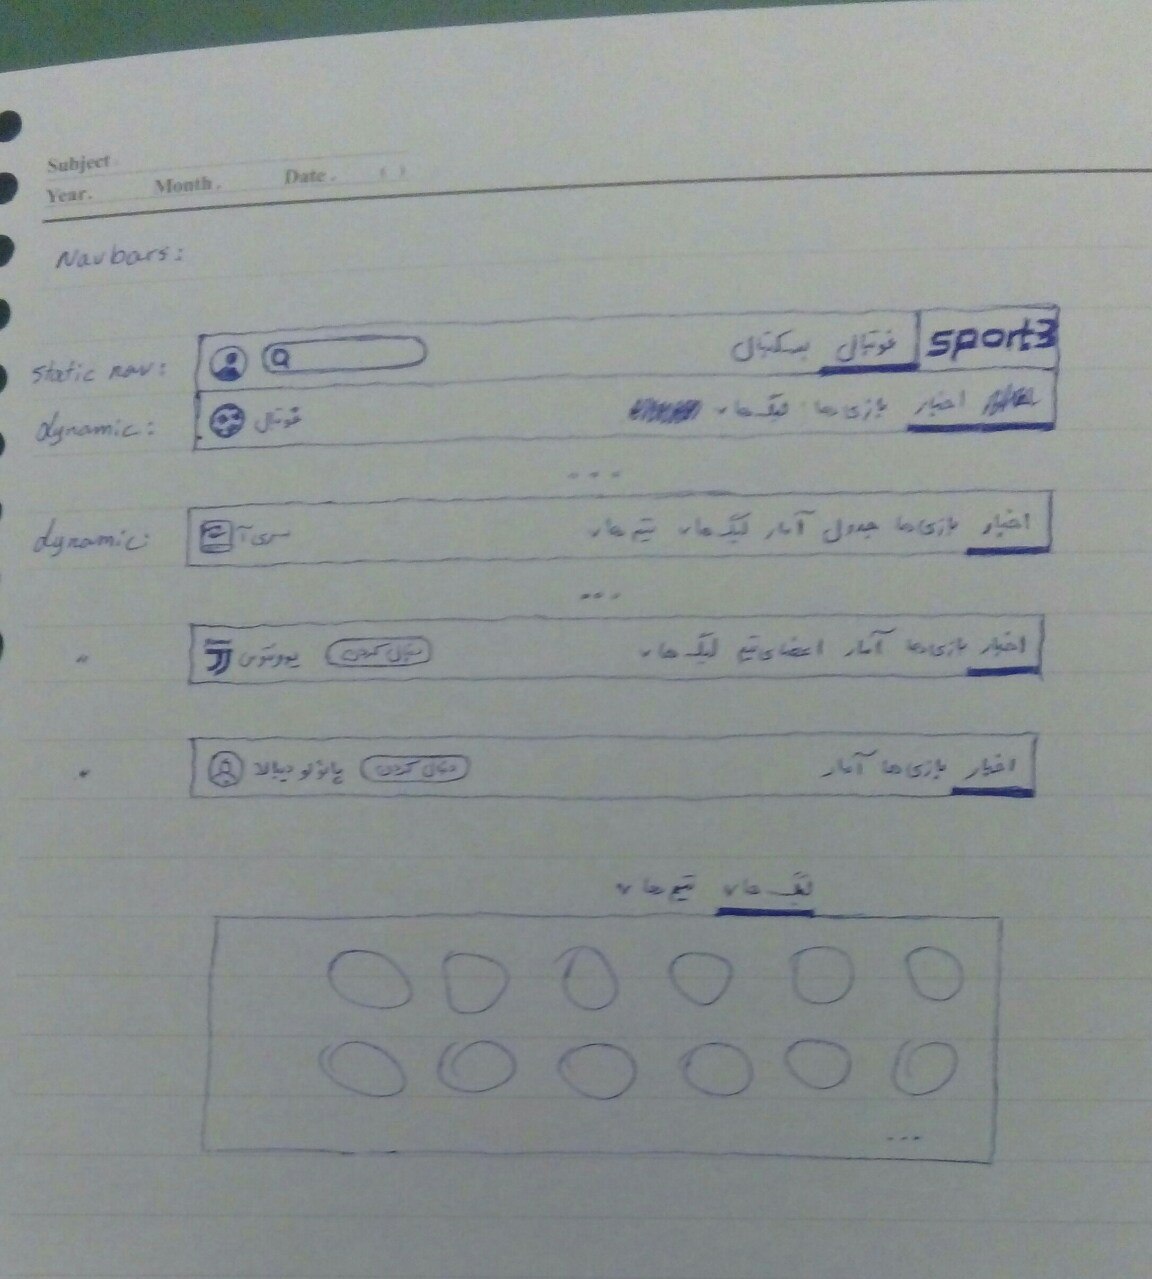 Subject.
Year. Month. Date. ( )
Navbars:
static nav: sport3 فوتبال بسکتبال
dynamic: اخبار بازی‌ها لیگ‌ها ˅ فوتبال
...
dynamic: اخبار بازی‌ها جدول آمار لیگ‌ها ˅ تیم‌ها ˅ سری آ
...
" اخبار بازی‌ها آمار اعضای تیم لیگ‌ها ˅ دنبال کردن یوونتوس
" اخبار بازی‌ها آمار دنبال کردن پائولو دیبالا
لیگ‌ها ˅ تیم‌ها ˅
...